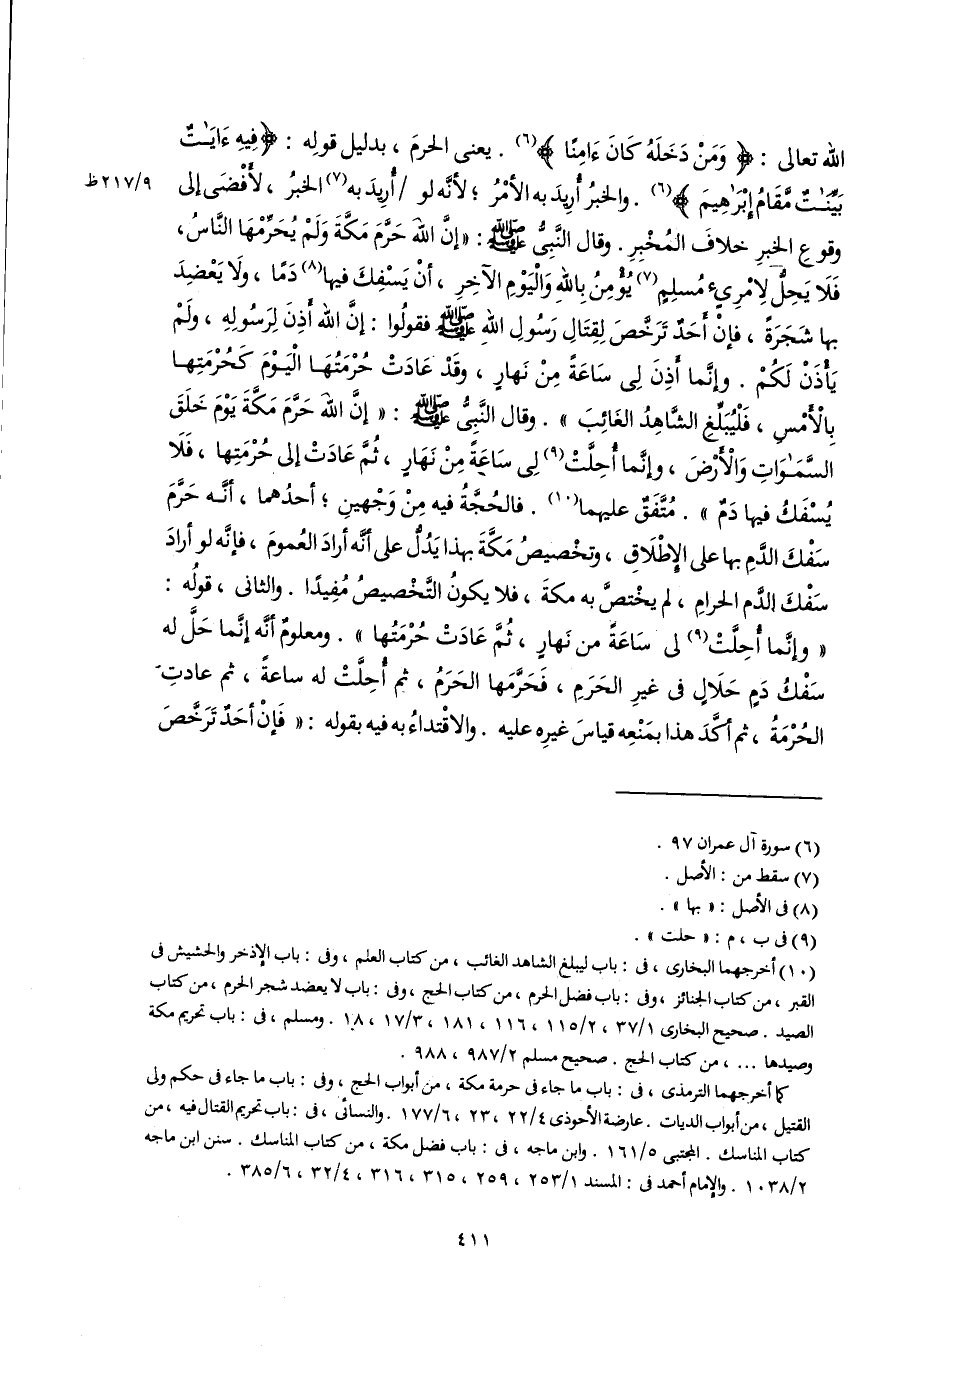 الله تعالى : ﴿ وَمَنْ دَخَلَهُ كَانَ ءَامِنًا ﴾(٦) . يعنى الحرمَ ، بدليل قولِه : ﴿ فِيهِ ءَايَـٰتٌ
بَيِّنَـٰتٌ مَّقَامُ إِبْرَاهِيمَ ﴾(٦) . والخبرُ أُريدَ به الأمْرُ ؛ لأنَّه لو / أُرِيدَ به(٧) الخبرُ ، لأَفْضَى إلى
٢١٧/٩ظ
وقوعِ الخبرِ خلافَ المُخْبِرِ . وقال النَّبِىُّ ﷺ : « إنَّ اللهَ حَرَّمَ مَكَّةَ وَلَمْ يُحَرِّمْهَا النَّاسُ ،
فَلَا يَحِلُّ لِامْرِىءٍ مُسلِمٍ(٧) يُؤْمِنُ بِاللهِ وَالْيَوْمِ الآخِرِ ، أنْ يَسْفِكَ فيها(٨) دَمًا ، ولَا يَعْضِدَ
بها شَجَرَةً ، فإنْ أَحَدٌ تَرَخَّصَ لِقِتَالِ رَسُولِ اللهِ ﷺ فقولُوا : إنَّ اللهَ أَذِنَ لِرَسُولِهِ ، ولَمْ
يَأْذَنْ لَكُمْ . وإنَّما أَذِنَ لِى سَاعَةً مِنْ نَهارٍ ، وقَدْ عَادَتْ حُرْمَتُهَا الْيَوْمَ كَحُرْمَتِهـا
بِالْأَمْسِ ، فَلْيُبَلِّغِ الشَّاهِدُ الغَائِبَ » . وقال النَّبِىُّ ﷺ : « إنَّ اللهَ حَرَّمَ مَكَّةَ يَوْمَ خَلَقَ
السَّمَـٰوَاتِ وَالْأَرْضَ ، وإنَّما أُحِلَّتْ(٩) لِى سَاعَةً مِنْ نَهَارٍ ، ثُمَّ عَادَتْ إلى حُرْمَتِها ، فَلَا
يُسْفَكُ فيها دَمٌ » . مُتَّفَقٌ عليهما(١٠) . فالحُجَّةُ فيه مِنْ وَجْهينِ ؛ أحدُهما ، أنَّـه حَرَّمَ
سَفْكَ الدَّمِ بها على الإِطْلَاقِ ، وتخْصيصُ مَكَّةَ بهذا يَدُلُّ على أنَّه أرادَ العُمومَ ، فإنَّه لو أرادَ
سفْكَ الدَّمِ الحرامِ ، لم يخْتصَّ به مكةَ ، فلا يكونُ التَّخْصيصُ مُفِيدًا . والثانى ، قولُه :
« وإنَّما أُحِلَّتْ(٩) لِى سَاعَةً من نَهارٍ ، ثُمَّ عَادَتْ حُرْمَتُها » . ومعلومٌ أنَّه إنَّما حَلَّ له
سَفْكُ دَمٍ حَلَالٍ فى غيرِ الحَرَمِ ، فَحَرَّمها الحَرَمُ ، ثم أُحِلَّتْ له ساعةً ، ثم عادتِ
الحُرْمَةُ ، ثم أكَّدَ هذا بمَنْعِه قياسَ غيرِه عليه . والاقْتداءُ به فيه بقوله : « فَإنْ أحَدٌ تَرَخَّصَ
(٦) سورة آل عمران ٩٧ .
(٧) سقط من : الأصل .
(٨) فى الأصل : « بها » .
(٩) فى ب ، م : « حلت » .
(١٠) أخرجهما البخارى ، فى : باب ليبلغ الشاهد الغائب ، من كتاب العلم ، وفى : باب الإذخر والحشيش فى
القبر ، من كتاب الجنائز ، وفى : باب فضل الحرم ، من كتاب الحج ، وفى : باب لا يعضد شجر الحرم ، من كتاب
الصيد . صحيح البخارى ٣٧/١ ، ١١٥/٢ ، ١١٦ ، ١٨١ ، ١٧/٣ ، ١٨ . ومسلم ، فى : باب تحريم مكة
وصيدها ... ، من كتاب الحج . صحيح مسلم ٩٨٧/٢ ، ٩٨٨ .
كما أخرجهما الترمذى ، فى : باب ما جاء فى حرمة مكة ، من أبواب الحج ، وفى : باب ما جاء فى حكم ولى
القتيل ، من أبواب الديات . عارضة الأحوذى ٢٢/٤ ، ٢٣ ، ١٧٧/٦ . والنسائى ، فى : باب تحريم القتال فيه ، من
كتاب المناسك . المجتبى ١٦١/٥ . وابن ماجه ، فى : باب فضل مكة ، من كتاب المناسك . سنن ابن ماجه
١٠٣٨/٢ . والإمام أحمد فى : المسند ٢٥٣/١ ، ٢٥٩ ، ٣١٥ ، ٣١٦ ، ٣٢/٤ ، ٣٨٥/٦ .
٤١١